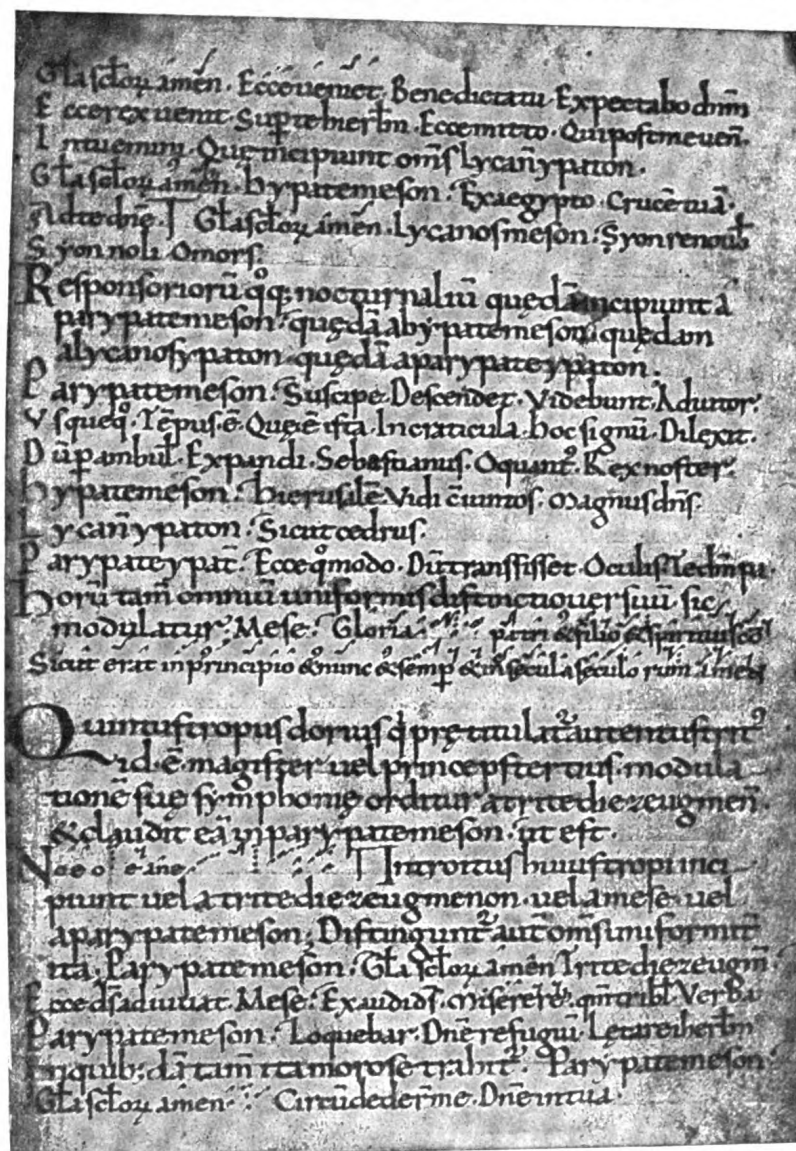 Gła scłoꝝ amen. Ecce ueniet. Benedicta tu. Expectabo dnm̄
Ecce rex uenit. Sup te hierłm. Ecce mitto. Qui post me ueñ.
Intuemini. Que incipiunt om̄s lycañ ypaton.
Gła scłoꝝ amen. hypatemeson. Ex aegypto. Crucē tuā.
Ad te dn̄e. Gła scłoꝝ amen. Lycanos meson. Syon renouł
Syon noli. O mors.
Responsoriorū qꝫ nocturnaliū quędā incipiunt a
parypatemeson. quędā ab ypatemeson. quędam
a lycanos ypaton. quędā a parypate ypaton.
Parypatemeson. Suscipe. Descendet. Videbunt. Adiutor.
Vsqueq°. Tēpus ē. Quę ē ista. In craticula. Hoc signū. Dilexit.
Dū pambul. Expandi. Sebastianus. O quant᾿. Rex noster.
hypatemeson. hierusałē. Vidi cīuntos. Magnus dn̄s.
Lycañ ypaton. Sicut cedrus.
Parypate ypat̄. Ecce q°modo. Dū transisset. Oculis.
horū tam̄ omniū uniformis distinctio uersuū sic
modulatur. Mese. Gloria patri & filio & spiritui scō
Sicut erat in principio & nunc & semp & in secula seculorum amen
Quintus tropus dorius q̇ prętitulat᾿ autentus trit᾿
id. ē. magister uel princeps tertius. modula
tionē suę symphonię orditur a trite diezeugmen̄.
& claudit eā in parypatemeson. ut est.
Noeoeane Introitus huius tropi inci
piunt uel a trite diezeugmenon. uel a mese. uel
a parypatemeson. Distingunt᾿ aut̄ om̄s uniformit᾿
ita. Parypatemeson. Gła scłoꝝ amen Trite diezeugm̄.
Ecce ds̄ adiuuat. Mese. Exaudi ds̄. Miserere. qm̄ tribł. Verba
Parypatemeson. Loquebar. Dn̄e refugiū. Lętare iherłm
In quibꝫdā tam̄ ita morose trahit᾿. Parypatemeson
Gła scłoꝝ amen Circūdeder̄ me. Dn̄e in tua.